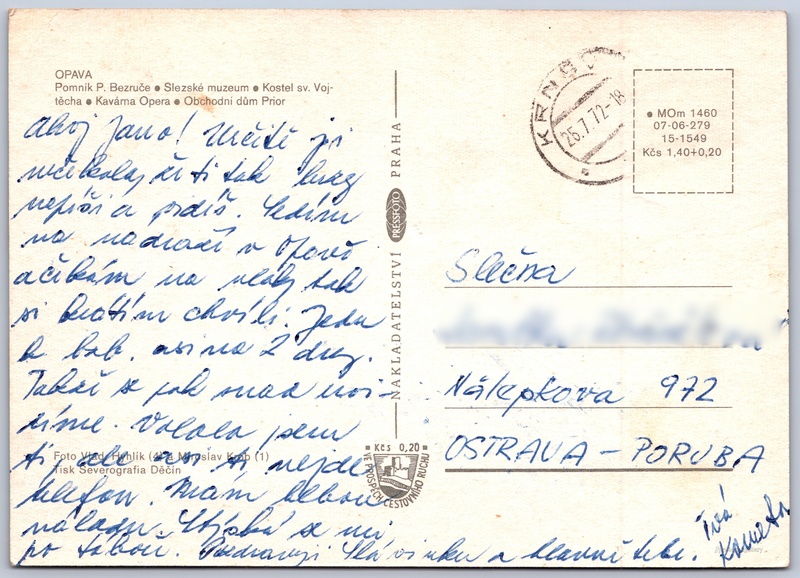 OPAVA
Pomník P. Bezruče ● Slezské muzeum ● Kostel sv. Voj-
těcha ● Kavárna Opera ● Obchodní dům Prior
Ahoj Jano! Určitě jsi
nečekalaj že ti tak brzy
napíši a vidíš. Sedím
na nádraží v Opavě
a čekám na vlak tak
si krátím chvíli. Jedu
k bab. asi na 2 dny.
Takže se pak snad
Volala jsem
ti ale asi ti nejde
telefon. Mám blbou
náladu. Stýská se mi
po tobě. Pozdravuj a hlavně tebe.
Tvá
Foto Vladimír Hyhlík (4) a Miroslav Krob (1)
Tisk Severografia Děčín
NAKLADATELSTVÍ PRESSFOTO PRAHA
Kčs 0,20
VE PROSPĚCH CESTOVNÍHO RUCHU
KRNOV
25.7.72-18
● MOm 1460
07-06-279
15-1549
Kčs 1,40+0,20
Slečna
Nálepkova 972
OSTRAVA – PORUBA